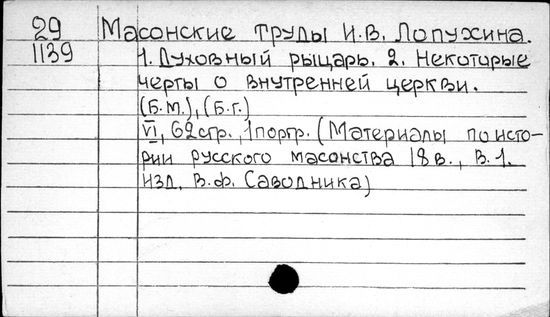 29 Масонские труды И.В. Лопухина.
1139 1. Духовный рыцарь. 2. Некоторые
черты о внутренней церкви.
(Б.м.), (Б.г.)
VI, 62стр., 1портр. (Материалы по исто-
рии русского масонства 18 в., В. 1.
изд. В.Ф. Саводника)